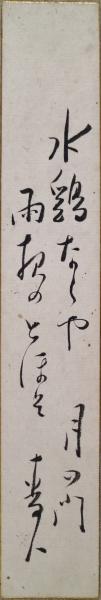 水鶏なくや 月の門
雨夜のとほそ